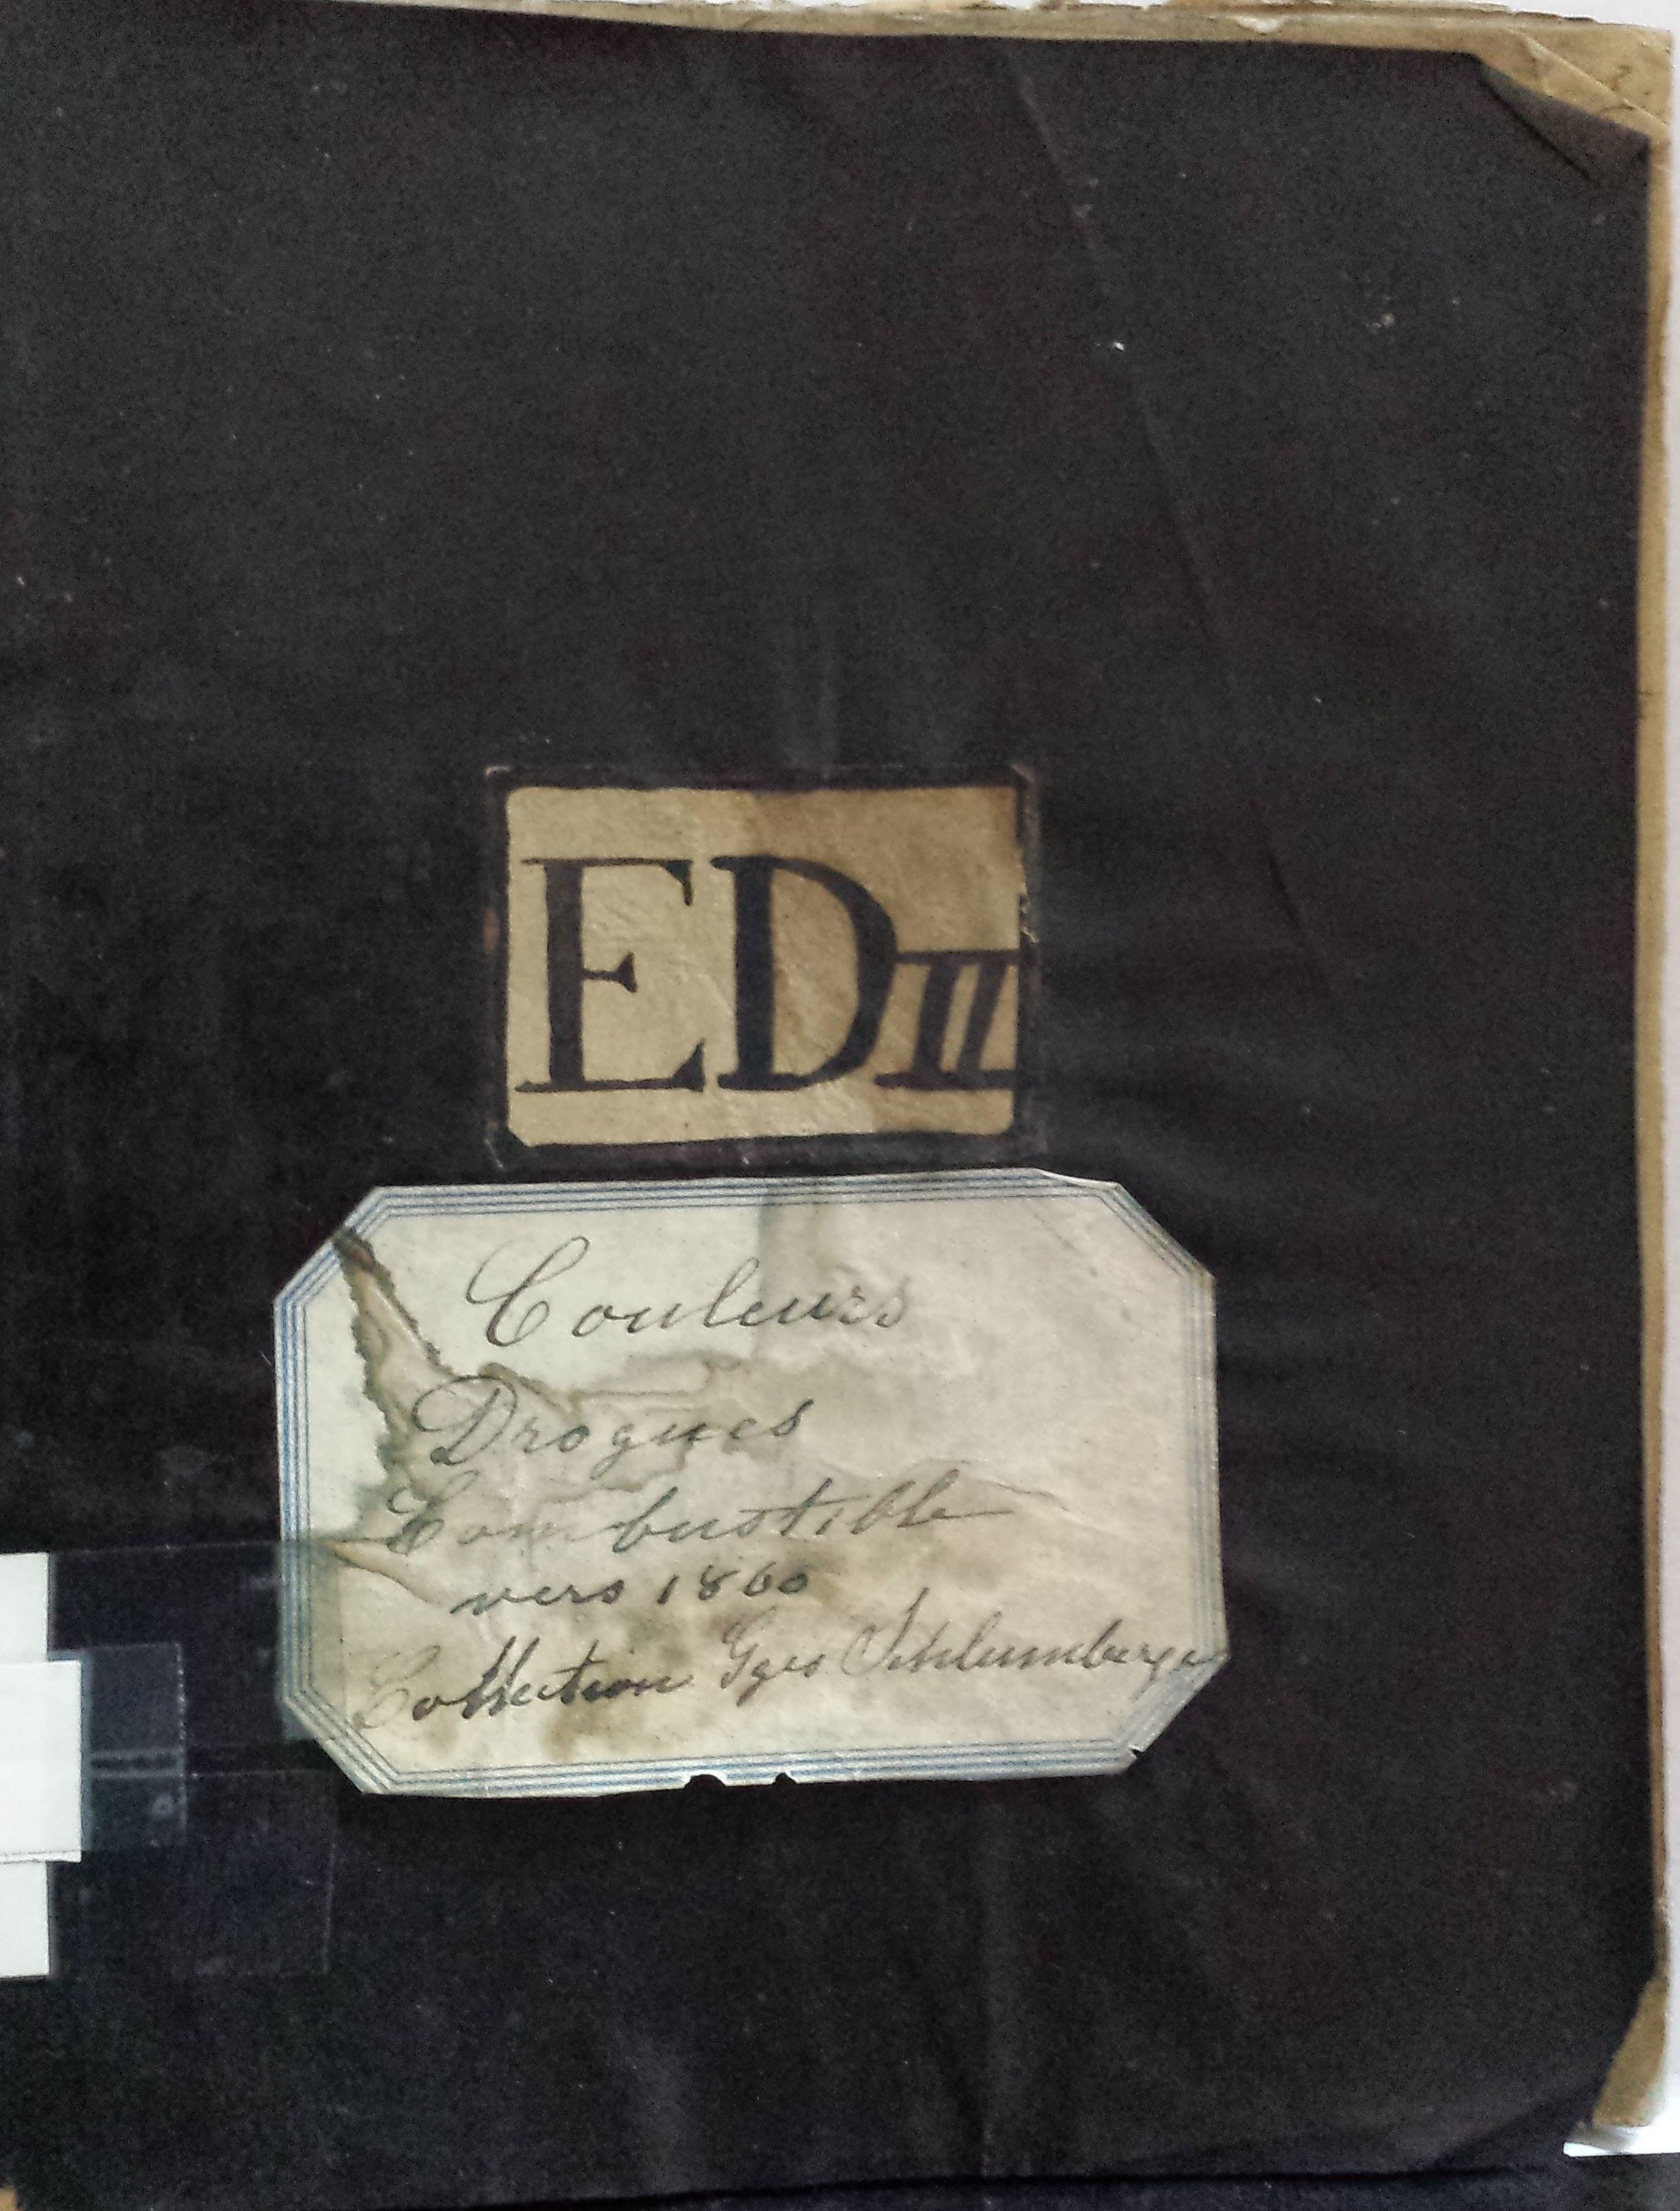 ED II
Couleurs
Drogues
Combustible
vers 1860
Collection Gges Schlumberger